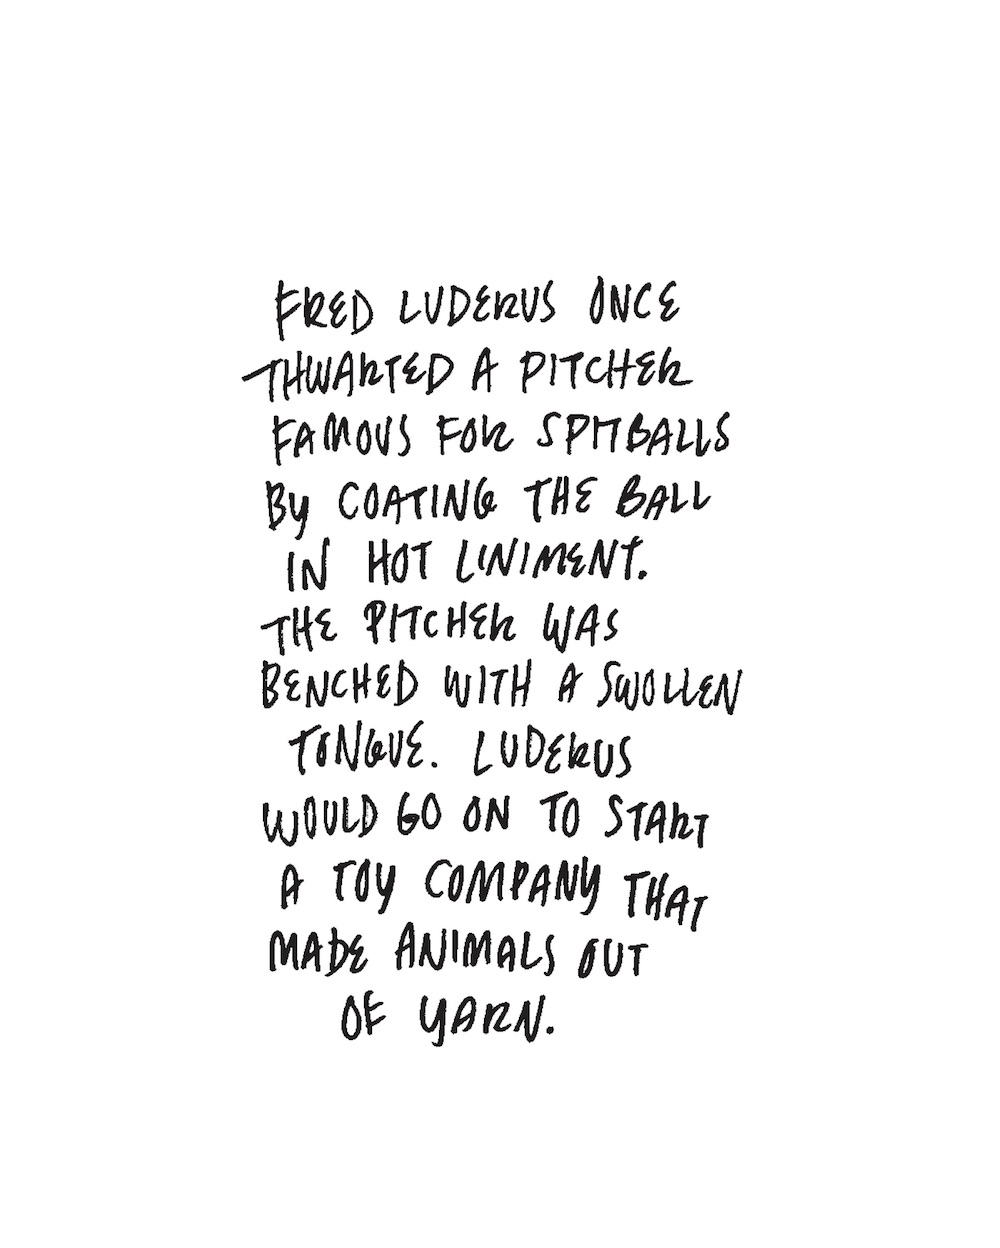 FRED LUDERUS ONCE
THWARTED A PITCHER
FAMOUS FOR SPITBALLS
BY COATING THE BALL
IN HOT LINIMENT.
THE PITCHER WAS
BENCHED WITH A SWOLLEN
TONGUE. LUDERUS
WOULD GO ON TO START
A TOY COMPANY THAT
MADE ANIMALS OUT
OF YARN.